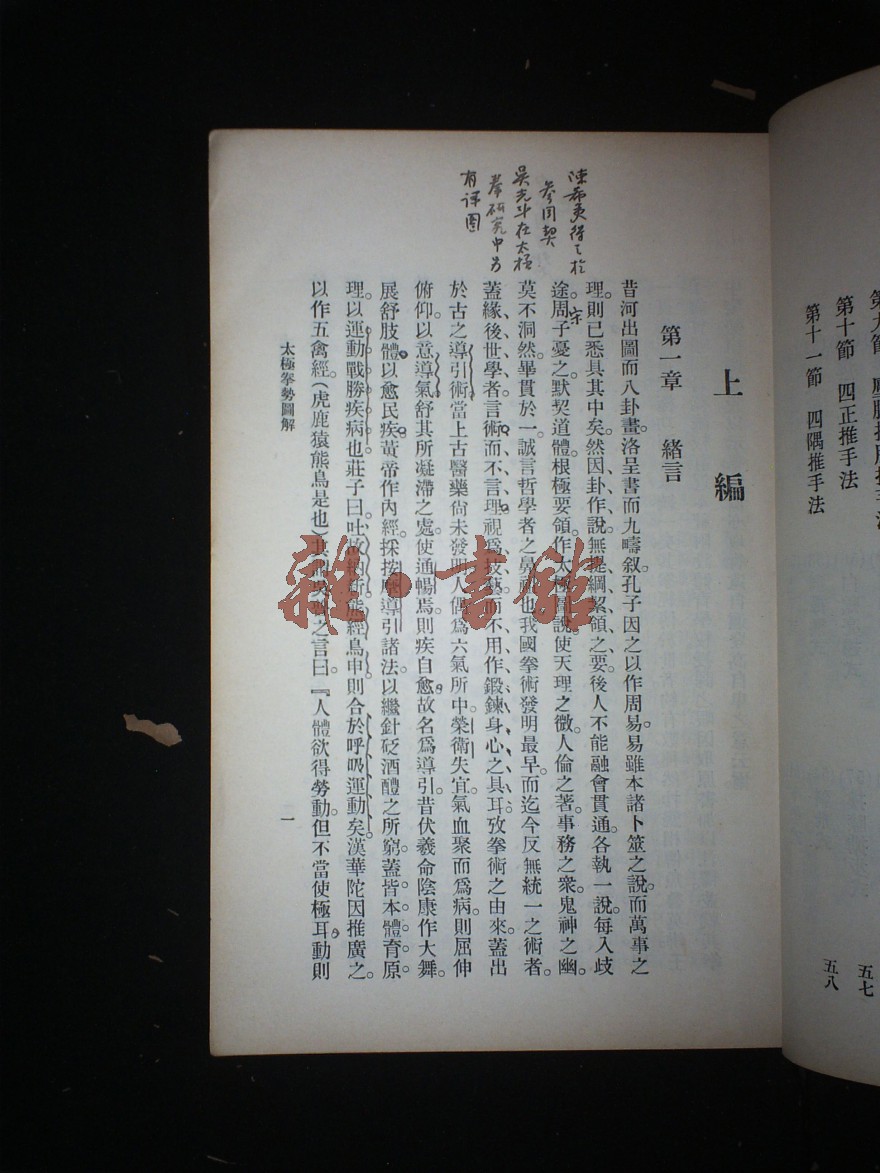 第十節　四正推手法　五七
第十一節　四隅推手法　五八
上編
第一章　緒言
昔河出圖而八卦畫。洛呈書而九疇叙。孔子因之以作周易。易雖本諸卜筮之說。而萬事之
理。則已悉具其中矣。然因卦作說。無提綱絜領之要。後人不能融會貫通。各執一說。每入歧
途。周子憂之。默契道體。根極要領。作太極圖說。使天理之微。人倫之著。事務之衆。鬼神之幽。
宗
莫不洞然。畢貫於一。誠言哲學者之鼻祖也。我國拳術發明最早。而迄今反無統一之術者。
蓋緣後世學者。言術而不言理。視爲技藝。而不用作鍛鍊身心之具耳。攷拳術之由來。蓋出
於古之導引術。當上古醫藥尙未發明。人偶爲六氣所中。榮衛失宜。氣血聚而爲病。則屈伸
俯仰。以意導氣。舒其所凝滯之處。使通暢焉。則疾自愈。故名爲導引。昔伏羲命陰康作大舞。
展舒肢體。以愈民疾。黃帝作內經。採按摩導引諸法。以繼針砭酒醴之所窮。蓋皆本體育原
理。以運動戰勝疾病也。莊子曰。吐故納新。熊經鳥申。則合於呼吸運動矣。漢華陀因推廣之。
以作五禽經(虎鹿猿熊鳥是也)其語吳普之言曰。『人體欲得勞動。但不當使極耳。動則
太極拳勢圖解
一
陳希夷得之於
參同契
在太極
拳研究中
有详图
雜·書館